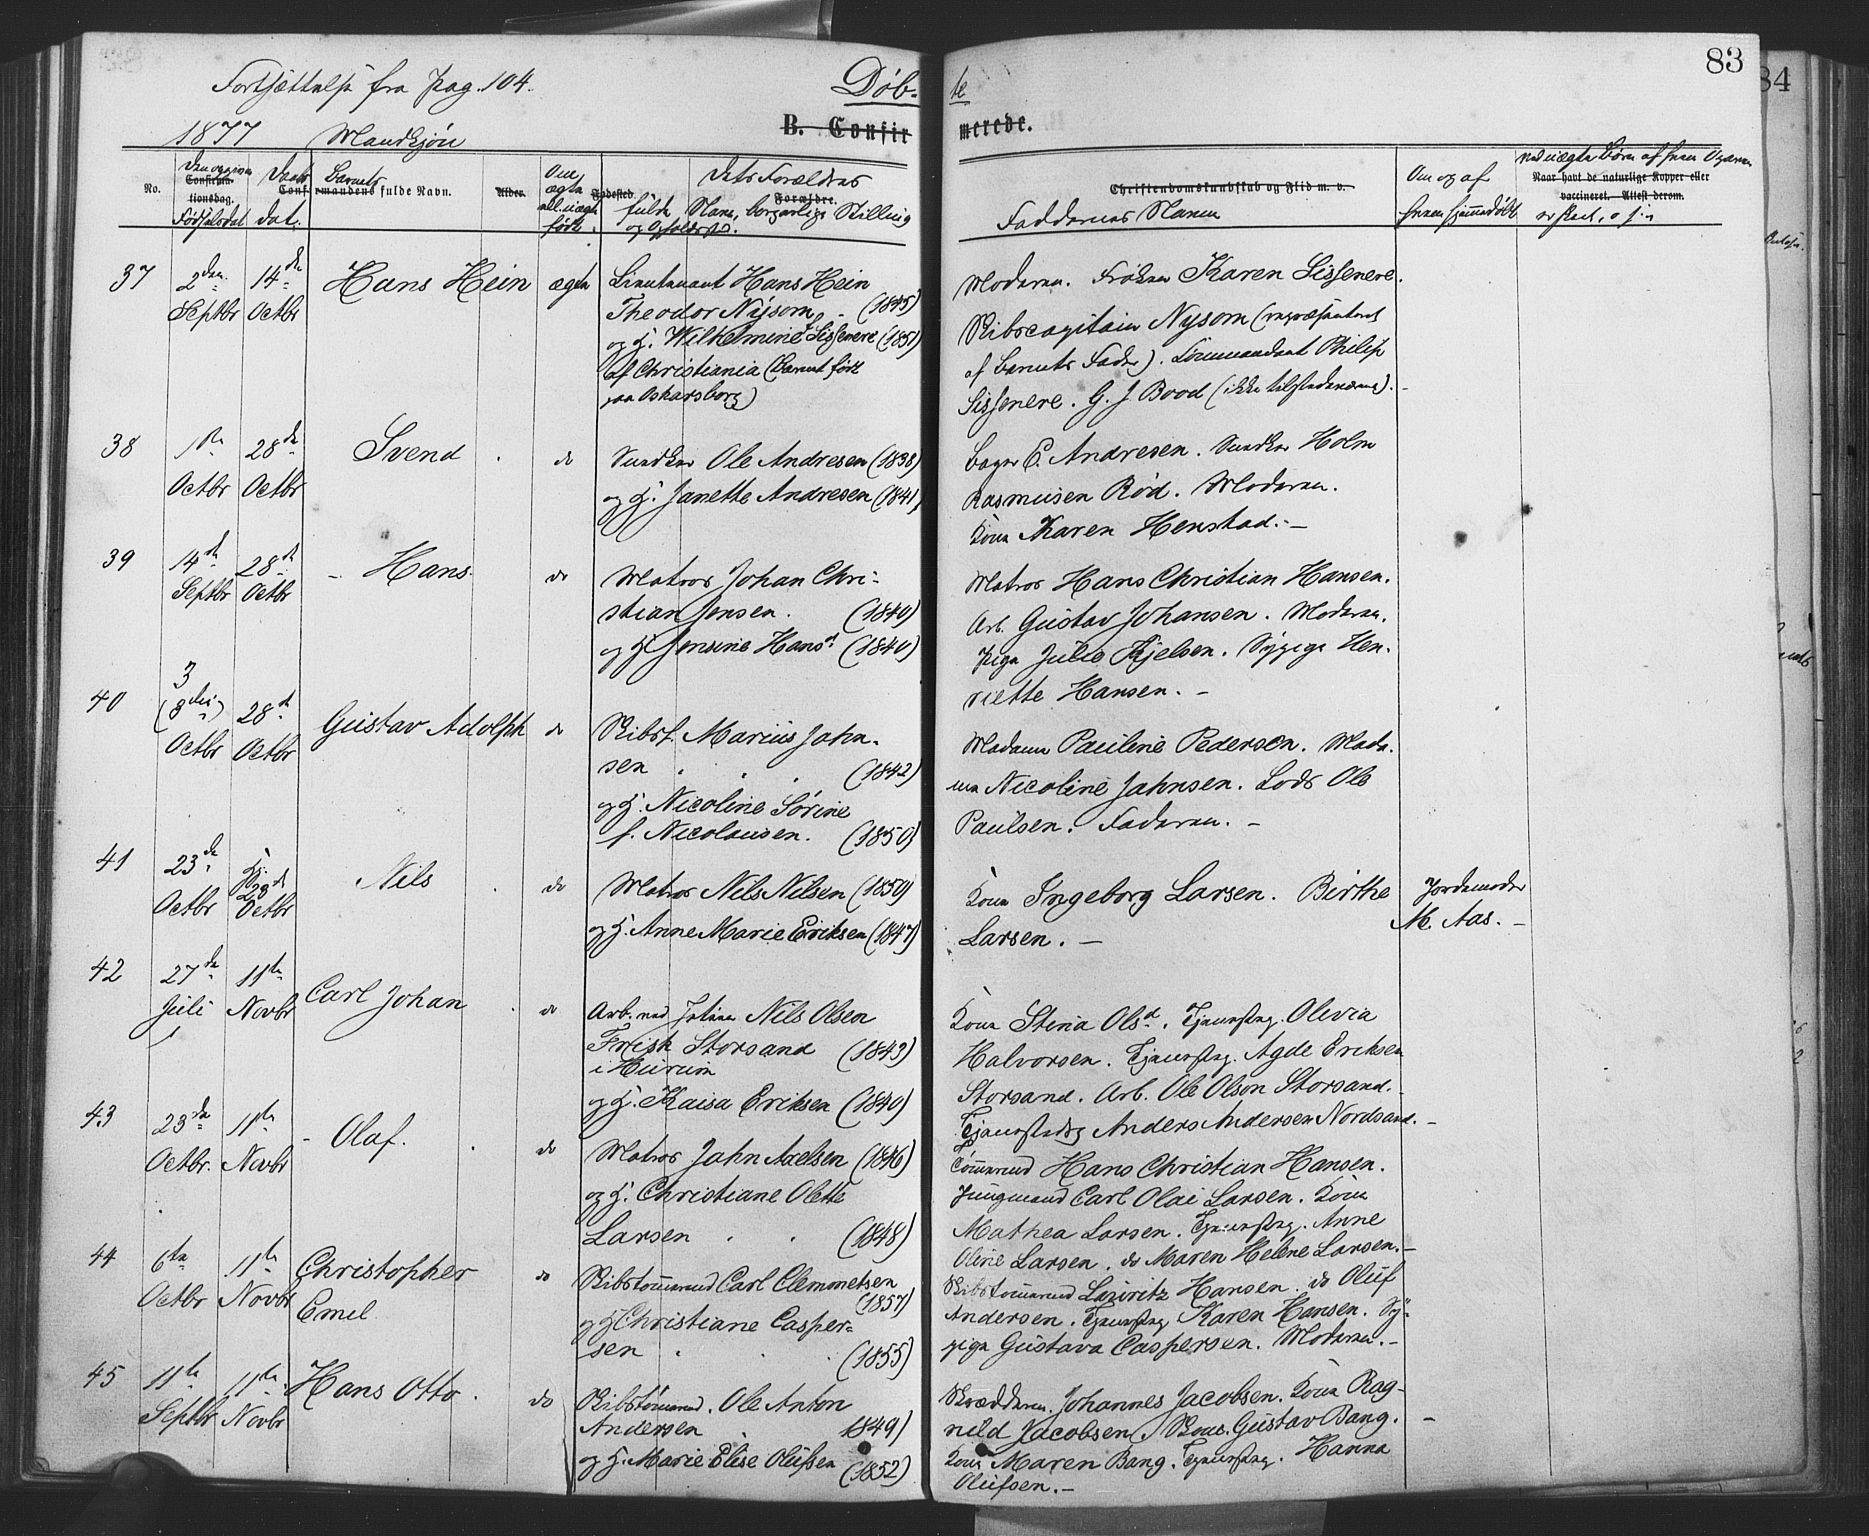 83
84
Fortsættelse fra Pag. 104.
Døb-
te
1877 Mandkjøn
B. Confir
merede.
No.
Confirma-
tionsdag.
Fødselsdat
Daabs
dat.
Barnets
Confirmandens fulde Navn.
Alder.
Om
ægte
ell. uægte
født.
Fødested.
Dets Forældres
Forældre.
fulde Navn, borgerlige Stilling
og Opholdssted.
Christendomskundskab og Flid m. v.
Faddernes Navne
Om og af
hvem hjemmedøbt
ved uægte Børn af hvem
Naar havt de naturlige Kopper eller
vaccineret. Attest derom.
37
2den
Septbr
14de
Octbr
Hans Hein
ægte
Lieutenant Hans Hein
Theodor Nysom, - (1845)
og H. Wilhelmine f. Sissenere (1851)
af Christiania (Barnet født
paa Oskarsborg)
Moderen. Frøken Karen Sissenere.
Skibscapitain Nysom (repræsenteret
af Barnets Fader). Commandant Philip
Sissenere. G. J Bood (ikke tilstedeværende). -
38
1ste
Octbr
28de
Octbr
Svend
do
Snedker Ole Andresen (1838)
og H. Janette Andresen (1841)
Bager E. Andresen. Snedker Holm
Rasmusen Röd. Moderen.
Kone Karen Henstad. -
39
14de
Septbr
28de
Octbr
- Hans.
do
Matros Johan Chri-
stian Jensen. (1840)
og H. Jensine Hansd. (1840)
Matros Hans Christian Hansen.
Arb. Gustav Johansen. Moderen.
Pige Julie Kjelsen. Sypige Hen-
riette Hansen. -
40
3
(3die)
Octbr
28de
Octbr
Gustav Adolph
do
Skibsf. Marius Jahn-
sen (1842)
og H. Nicoline Sørine
f. Nicolaisen. (1850)
Madam Pauline Pedersen. Mada-
me Nicoline Jahnsen. Lods Ole
Paulsen. Faderen. -
41
23de
Octbr
Hj.
28de
Octbr
Nils
do
Matros Nils Nilsen (1850)
og H. Anne Marie Eriksen (1847)
Kone Ingeborg Larsen. Birthe
Larsen. -
Jordemoder
M. Aas. -
42
27de
Juli
11te
Novbr
Carl Johan
do
Arb. ved Nils Olsen
Frisk Storsand (1843)
i Hurum
og H. Kaisa Eriksen (1840)
Kone Stina Olsd. Tjenestpg. Olivia
Halvorsen. Tjenestpg. Agde Eriksen
Storsand. Arb. Ole Olson Storsand.
Tjenestedrg Anders Andersen Nordsand. -
43
23de
Octbr.
11te
Novbr
- Olaf.
do
Matros Jahn Axelsen (1846)
og H. Christiane Olette
Larsen (1848)
Tømmermd Hans Christian Hansen.
Jungmand Carl Olai Larsen. Kone
Mathea Larsen. Tjenestpg. Anne
Oline Larsen. do Maren Helene Larsen. -
44
6te
Octbr
11te
Novbr
Christopher
Emel
do
Skibstømmermd Carl Clemmetsen
(1857)
og H Christiane Casper-
sen (1855)
Skibstømmermd Lauritz Hansen. do Oluf
Andersen. Tjenestpg Karen Hansen. Sy-
pige Gustava Caspersen. Moderen. -
45
11te
Septbr
11te
Novbr
Hans Otto.
do
Skibstømmermd. Ole Anton
Andersen 1849)
og H. Marie Elise Olufsen (1852)
Skrædderm. Johannes Jacobsen. Kone Rag-
nild Jacobsen. Gustav Bang. -
Kone Maren Bang. Tjenestpg. Hanna
Olufsen. -